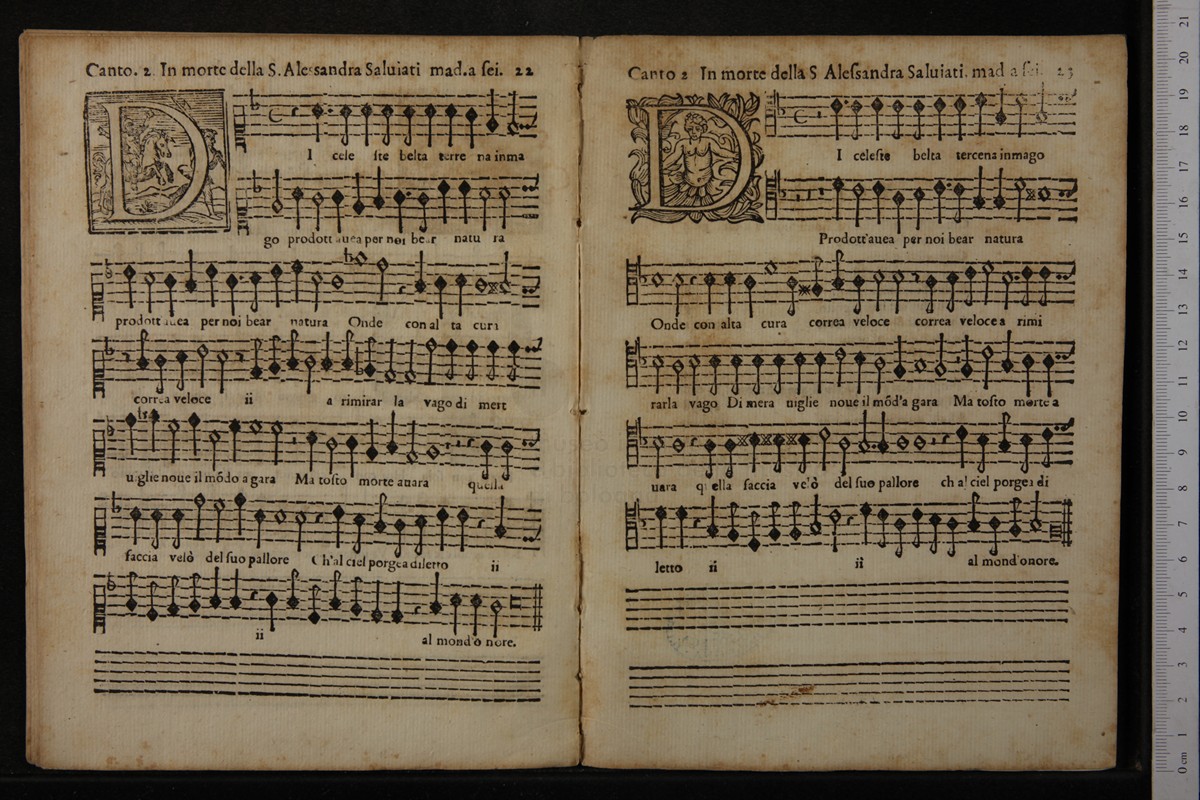 Canto. 2. In morte della S. Alessandra Saluiati mad. a sei. 22
DI cele ste belta terre na inma
go prodott auea per noi bear natu ra
prodott auea per noi bear natura Onde con al ta cura
correa veloce ii a rimirar la vago di mera
uiglie noue il mõdo a gara Ma tosto morte auara quella
faccia velò del suo pallore Ch'al ciel porgea diletto ii
ii al mond'o nore.
Canto 2 In morte della S Alessandra Saluiati. mad a sei. 23
DI celeste belta terrena inmago
Prodott'auea per noi bear natura
Onde con alta cura correa veloce correa veloce a rimi
rarla vago Di mera uiglie noue il mõd'a gara Ma tosto morte a
uara quella faccia velò del suo pallore ch al ciel porgea di
letto ii ii al mond'onore.
0 cm 1 2 3 4 5 6 7 8 9 10 11 12 13 14 15 16 17 18 19 20 21